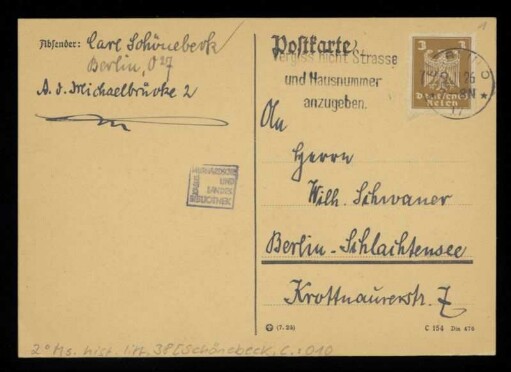 Absender: Carl Schönebeck
Berlin, O 27
A. d. Michaelbrücke 2
Postkarte
Vergiss nicht Strasse
und Hausnummer
anzugeben.
3 3
Deutsches
Reich
An
Herrn
Wilh. Schwaner
Berlin-Schlachtensee
Krottnaurerstr. 7
MURHARDSCHE
UND
LANDES
BIBLIOTHEK
(7. 26)
C 154 Din 476
2° Ms. hist. litt. 38 [Schönebeck, C.: 010
1